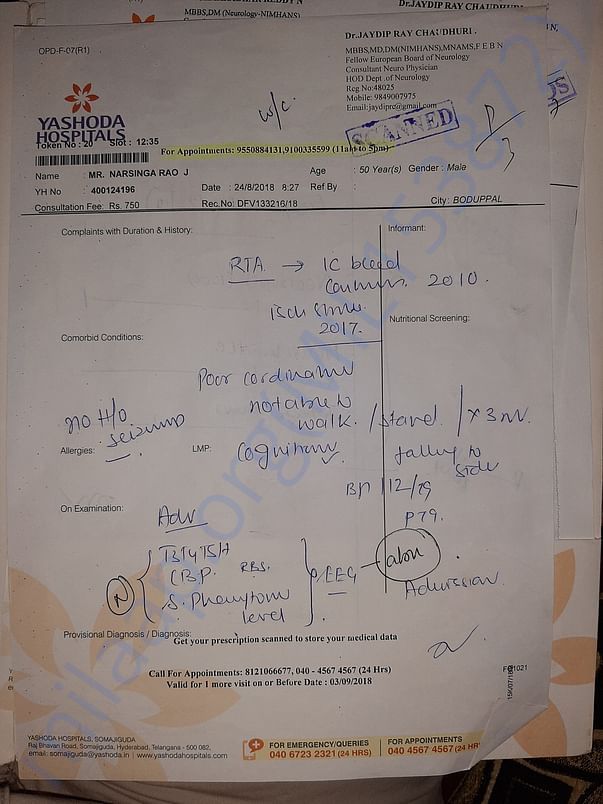 MBBS,DM (Neurology-NIMHANS)
Dr.JAYDIP RAY CHAUDHURI .
OPD-F-07(R1)
MBBS,MD,DM(NIMHANS),MNAMS,F E B N
Fellow European Board of Neurology
Consultant Neuro Physician
HOD Dept .of Neurology
Reg No:48025
Mobile: 9849007975
Email:jaydiprc@gmail.com
w/c.
SCANNED
YASHODA
HOSPITALS
Token No : 20 Slot : 12:35
For Appointments: 9550884131,9100335599 (11am to 5pm)
Name : MR. NARSINGA RAO J Age : 50 Year(s) Gender : Male
YH No 400124196 Date : 24/8/2018 8:27 Ref By :
Consultation Fee: Rs. 750 Rec.No: DFV133216/18 City: BODUPPAL
Complaints with Duration & History:
Informant:
RTA → IC bleed
2010.
isch stroke
2017.
Nutritional Screening:
Comorbid Conditions:
Poor
not able to
walk. / stand / x 3
no H/O
Allergies:
LMP:
falling to
side
BP 112/79
P 79.
On Examination:
Adv
CBP. RBS.
S. Phenytoin
level
EEG
Admission
Provisional Diagnosis / Diagnosis:
Get your prescription scanned to store your medical data
Call For Appointments: 8121066677, 040 - 4567 4567 (24 Hrs)
Valid for 1 more visit on or Before Date : 03/09/2018
YASHODA HOSPITALS, SOMAJIGUDA
Raj Bhavan Road, Somajiguda, Hyderabad, Telangana - 500 082,
email: somajiguda@yashoda.in | www.yashodahospitals.com
FOR EMERGENCY/QUERIES
040 6723 2321 (24 HRS)
FOR APPOINTMENTS
040 4567 4567 (24 HR